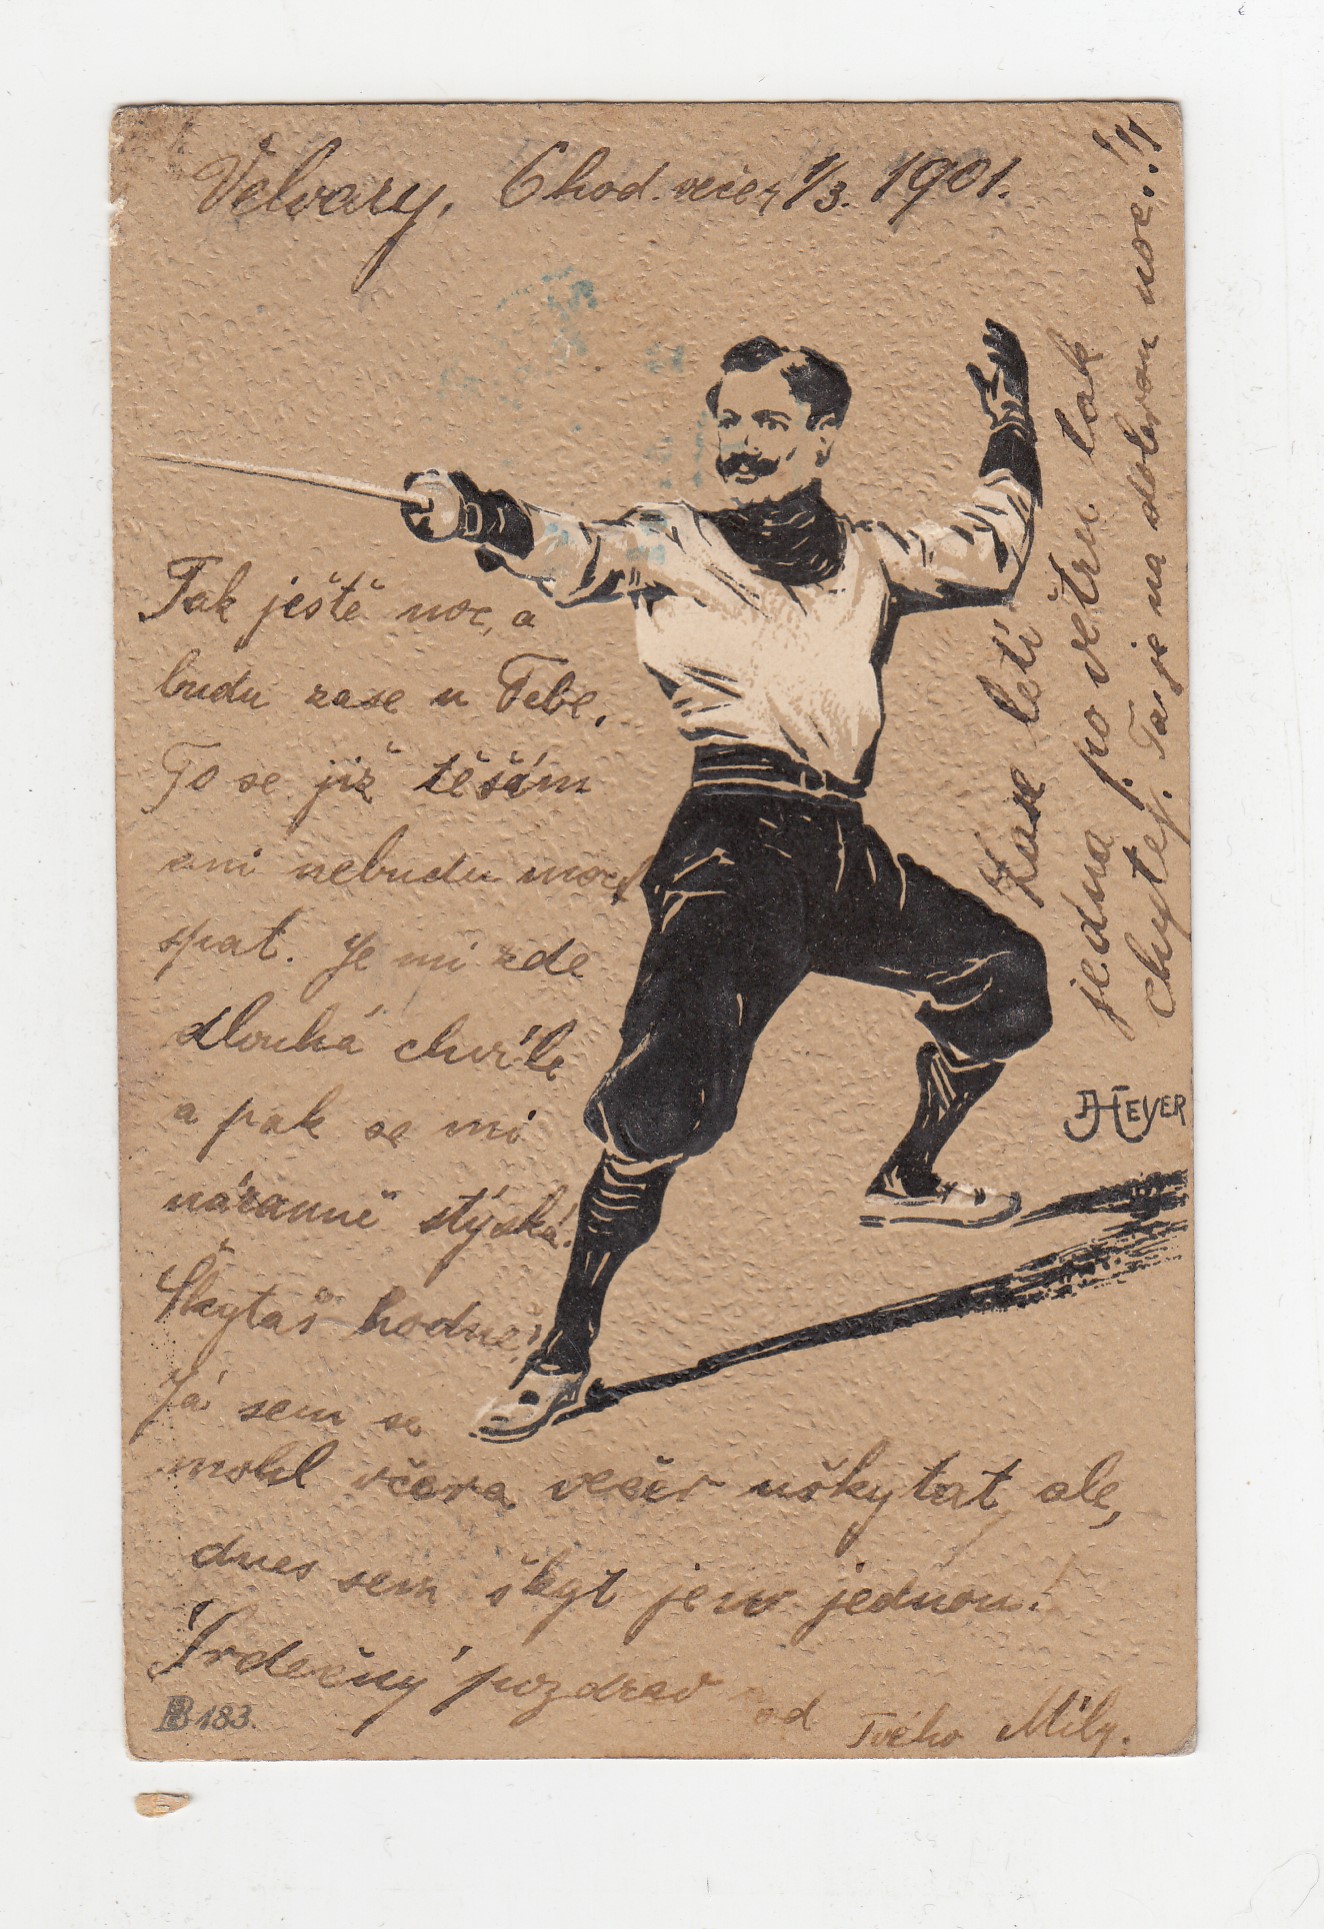 Velvary, 6 hod. večer 1/3. 1901.
Tak ještě noc, a
budu zase u Tebe.
To se již těšám
ani nebudu moct
spat. Je mi zde
dlouhá chvíle
a pak se mi
náramně stýská!
Škytáš hodně?
Já sem se
mohl včera večer uškytat, ale,
dnes sem škyt jenom jednou!
Srdečný pozdrav od Tvého Mily.
Zase letí
jedna po větru tak
chytej. Ta je na dobrou noc!!!
A HEYER
183.